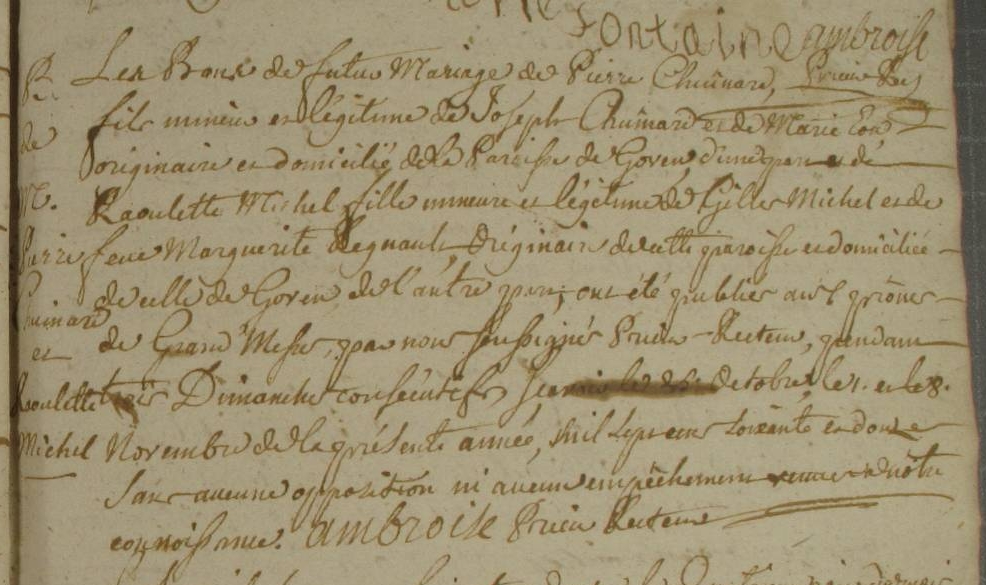 fontaine ambroise
Prieur R
Les Bans de futur Mariage de Pierre Chuinard,
fils mineur et légitime de Joseph Chuinard et de Marie
originaire et domicilié de la Paroisse de Goven d'une part et de
Raoulette Michel fille mineure et légitime de Gilles Michel et de
feue Marguerite Regnault, Originaire de cette paroisse et domiciliée
de celle de Goven de l'autre part, ont été publiés aux prônes
de Grand Messe, par nous soussigné Prieur-Recteur, pendant
trois Dimanches consécutifs octobre, le 1. et le 8.
Novembre de la présente année, mil sept cent soixante et douze
sans aucune opposition ni aucun empêchement venu à notre
connoissance. ambroise Prieur Recteur
B.
de
M.
Pierre
Chuinard
et
Raoulette
Michel